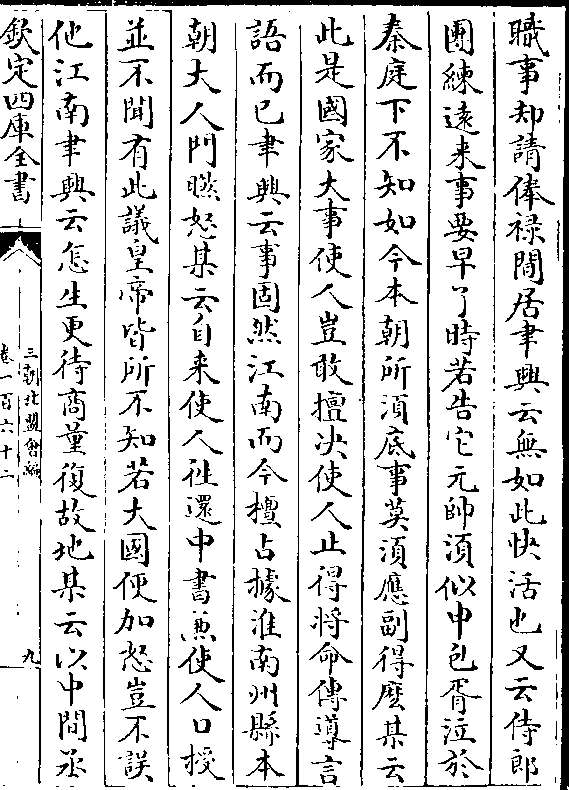 職事却請俸禄閒居聿興云無如此快活也又云侍郎
團練遠来事要早了時若告它元帥須似申包胥泣於
秦庭下不知如今本朝所須底事莫須應副得麽某云
此是國家大事使人豈敢擅决使人止得将命傳導言
語而已聿興云事固然江南而今擅占據淮南州縣本
朝大人門曒怒某云自来使人徃還中書兼使人口授
並不聞有此議皇帝皆所不知若大國便加怒豈不誤
他江南聿興云怎生更待商量復故地某云以中間丞
欽定四庫全書
三朝北盟會編
卷一百六十二
九